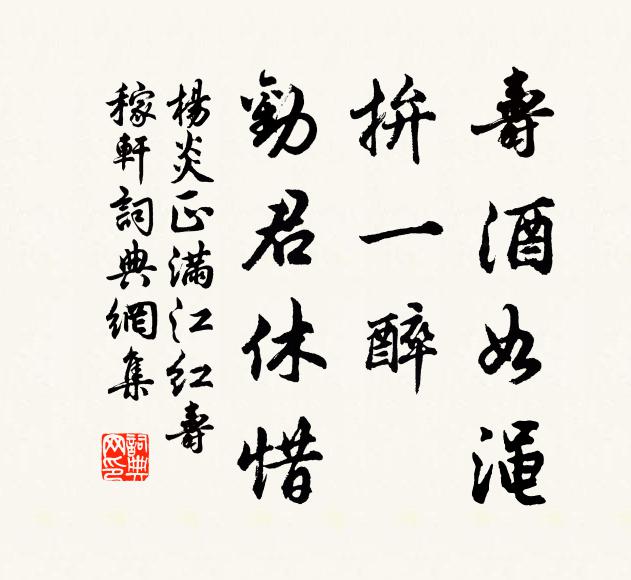 壽酒如澠
拚一醉
勸君休惜
楊炎正滿江紅壽
稼軒詞典網集
詞典網印